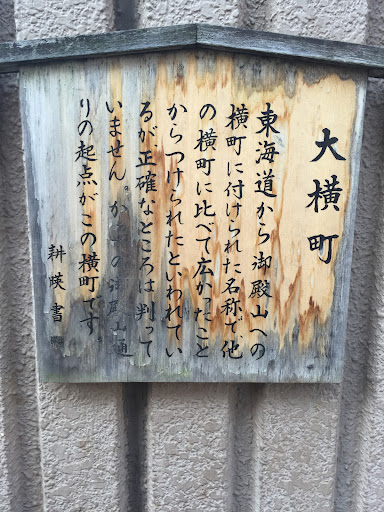 大横町
東海道から御殿山への
横町に付けられた名称で他
の横町に比べて広かったこと
からつけられたといわれてい
るが、正確なところは判って
いません。か の御殿山通
りの起点がこの横町です。
耕暎書